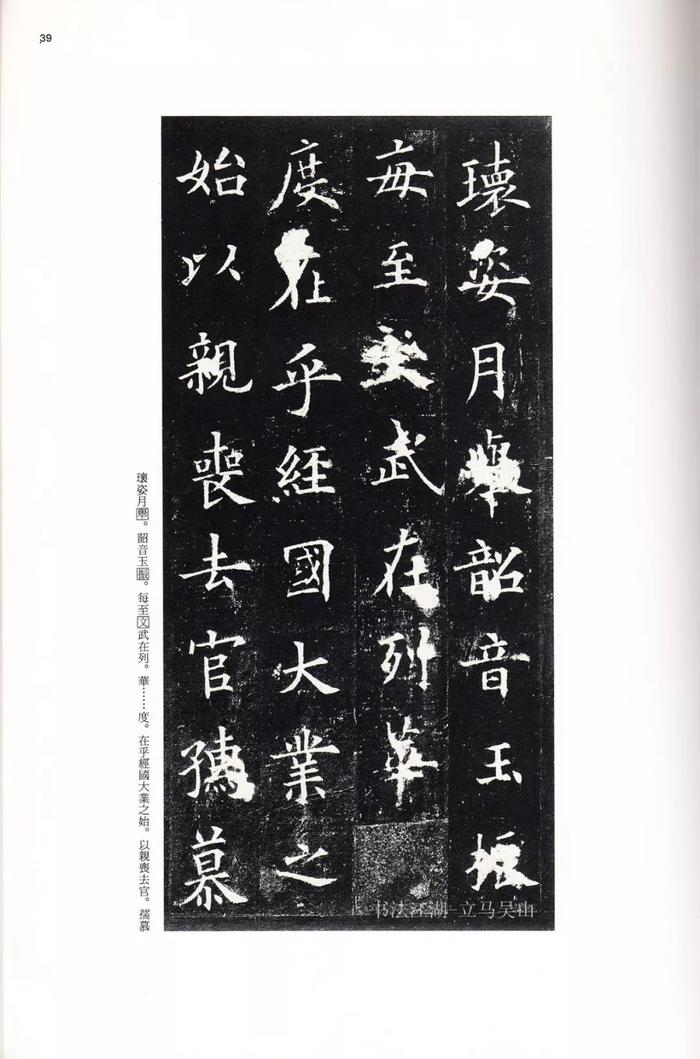 39
瓌姿月舉韶音玉振
每至文武在列華
度在乎經國大業之
始以親喪去官孺慕
瓌姿月舉。韶音玉振。每至文武在列。華……度。在乎經國大業之始。以親喪去官。孺慕
书法江湖-立马吴山